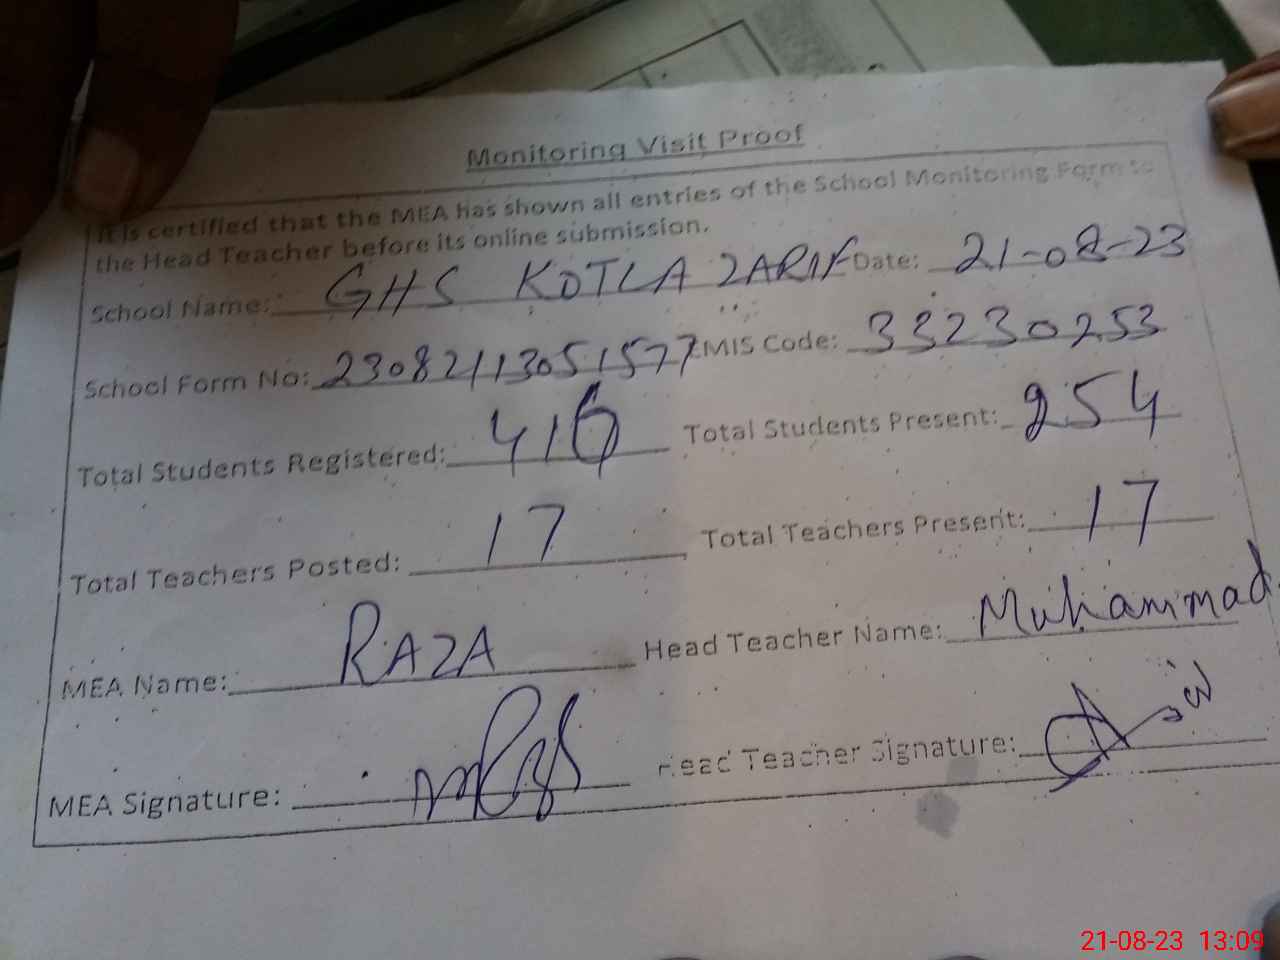 Monitoring Visit Proof
It is certified that the MEA has shown all entries of the School Monitoring Form to
the Head Teacher before its online submission.
School Name: GHS KOTLA ZARIF Date: 21-08-23
School Form No: 23082113051577 EMIS Code: 33230253
Total Students Registered: 416 Total Students Present: 254
Total Teachers Posted: 17 Total Teachers Present: 17
MEA Name: RAZA Head Teacher Name: Muhammad
MEA Signature: Head Teacher Signature:
21-08-23 13:09